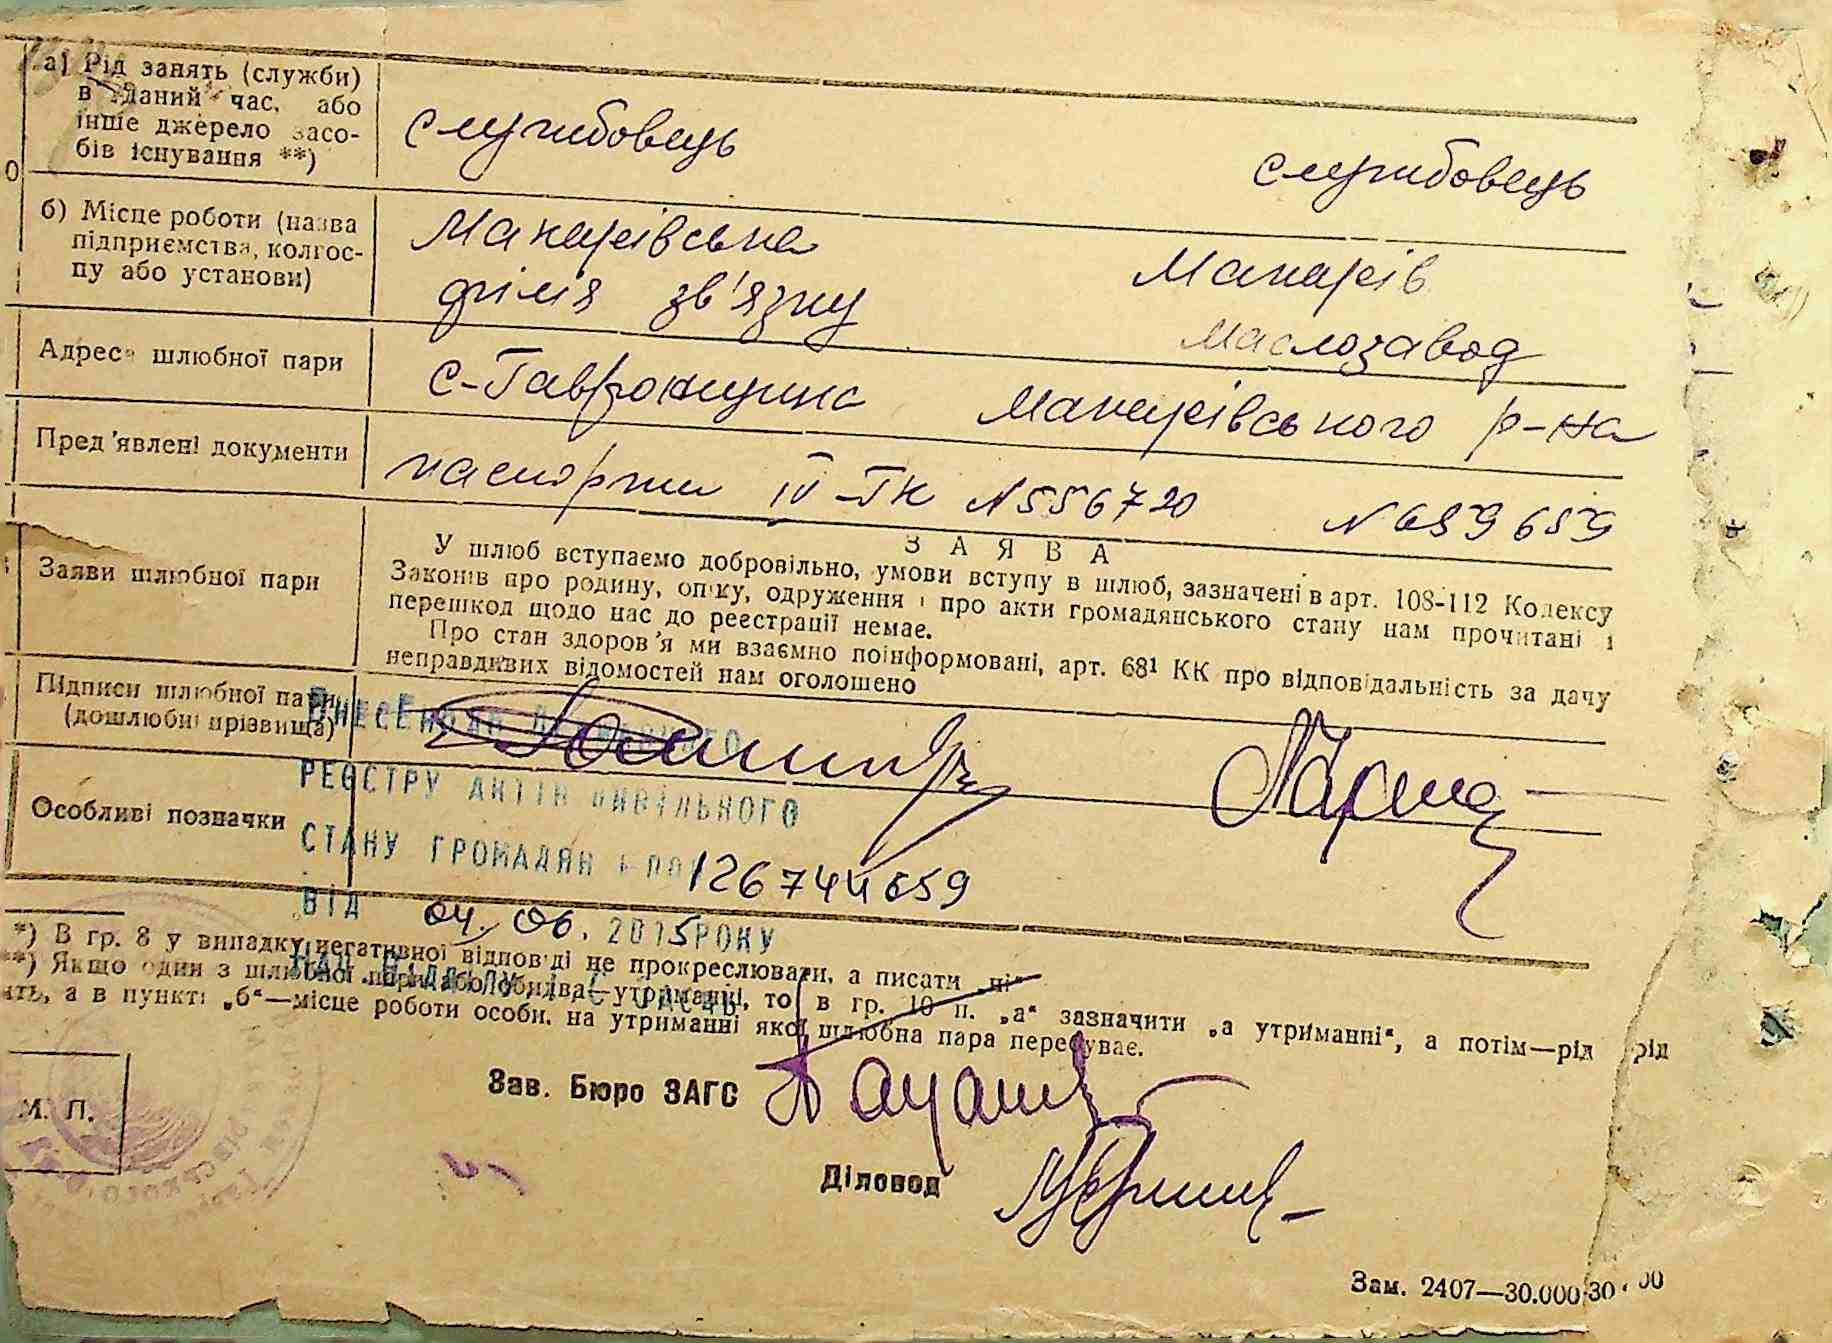 а) Рід занять (служби)
в даний час, або
інше джерело засо-
бів існування **)
службовець
службовець
б) Місце роботи (назва
підприємства, колгос-
пу або установи)
Макарівська
філія зв'язку
Макарів
маслозавод
Адреса шлюбної пари
с-Гавронщина Макарівського р-на
Пред'явлені документи
паспорти IV-ГК N 556720 N 659659
ЗАЯВА
Заяви шлюбної пари
У шлюб вступаємо добровільно, умови вступу в шлюб, зазначені в арт. 108-112 Кодексу
Законів про родину, опіку, одруження і про акти громадянського стану нам прочитані і
перешкод щодо нас до реєстрації немає.
Про стан здоров'я ми взаємно поінформовані, арт. 68¹ КК про відповідальність за дачу
неправдивих відомостей нам оголошено
Підписи шлюбної пари
(дошлюбні прізвища)
ВНЕСЕНО ДО ДЕРЖАВНОГО
РЕЄСТРУ АКТІВ ЦИВІЛЬНОГО
Особливі позначки
СТАНУ ГРОМАДЯН 126744659
ВІД 04.06.2015 РОКУ
НАЧ.ВІДДІЛУ
*) В гр. 8 у випадку негативної відповіді не прокреслювати, а писати „ні“
**) Якщо один з шлюбної пари або обидва—утриманці, то в гр. 10 п. „а“ зазначити „а утриманні“, а потім—рід
ять, а в пункті „б“—місце роботи особи, на утриманні якої шлюбна пара перебуває.
Зав. Бюро ЗАГС
М. П.
Діловод
Зам. 2407—30.000